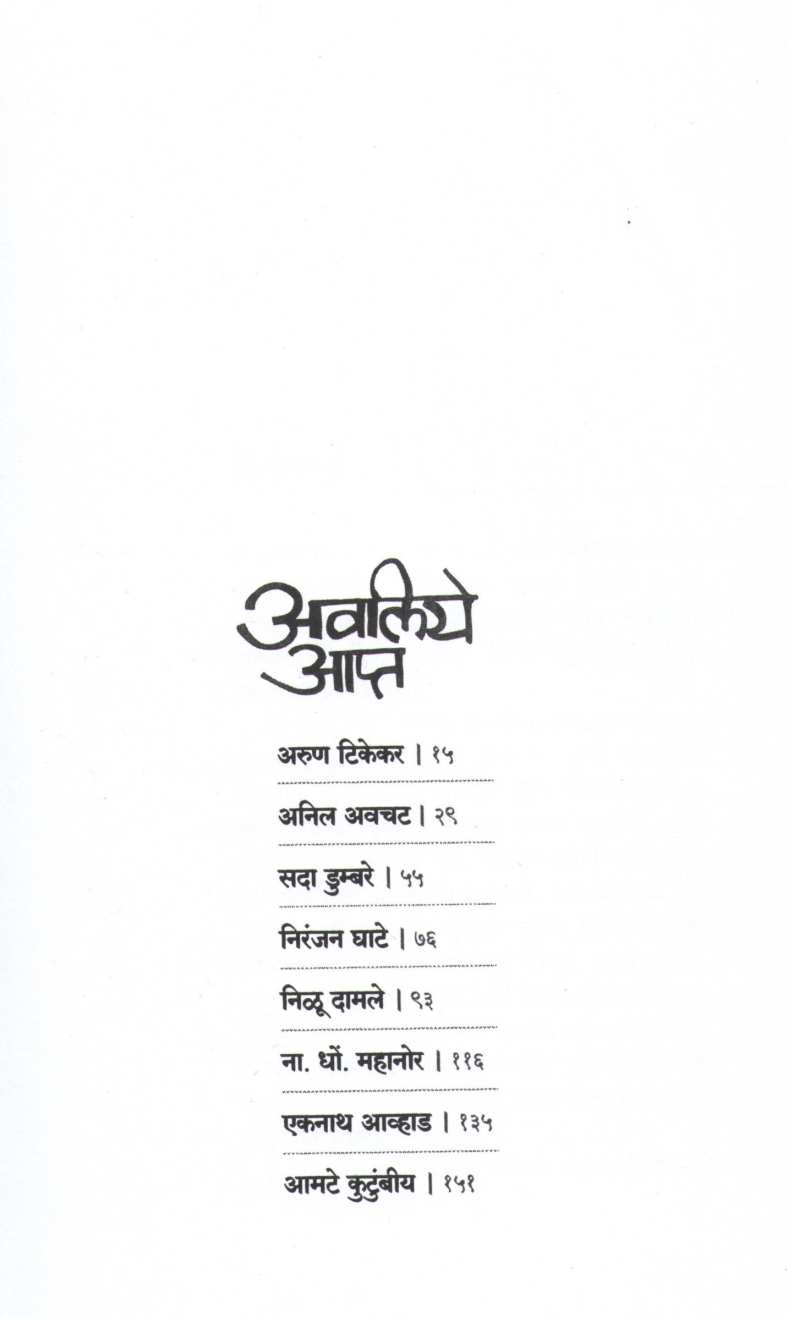 अवलिये
आप्त
अरुण टिकेकर | १५
अनिल अवचट | २९
सदा डुम्बरे | ५५
निरंजन घाटे | ७६
निळू दामले | ९३
ना. धों. महानोर | ११६
एकनाथ आव्हाड | १३५
आमटे कुटुंबीय | १५१